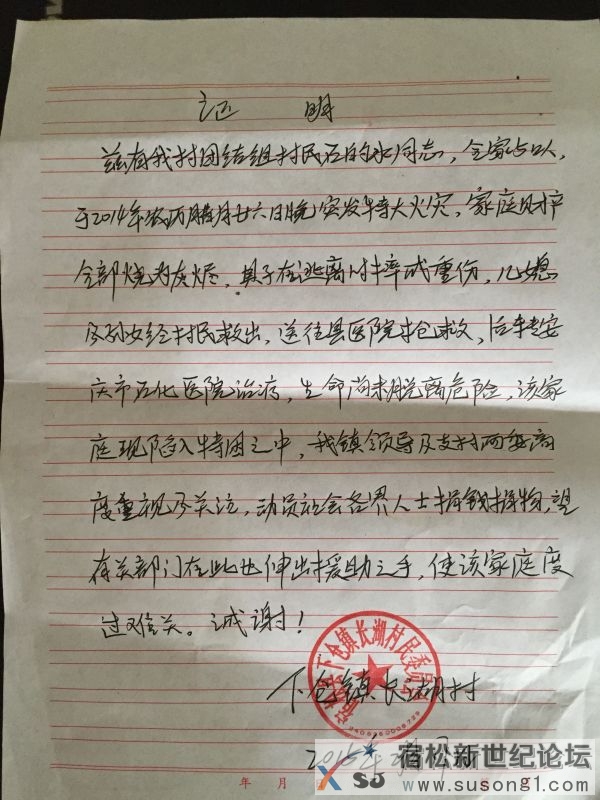 证 明
兹有我村团结组村民石的水同志，全家六口人，
于2014年农历腊月廿六日晚突发特大火灾，家庭财产
全部烧为灰烬，其子在逃离时摔成重伤，儿媳
及孙女经村民救出，送往县医院抢救，后转安
庆市石化医院治疗，生命尚未脱离危险，该家
庭现陷入特困之中，我镇领导及支村两委高
度重视及关注，动员社会各界人士捐钱捐物，望
有关部门在此也伸出援助之手，使该家庭度
过难关。诚谢！
下仓镇长湖村民委员会
下仓镇长湖村
2015年
年 月
XSJ 宿松新世纪论坛
www.susong1.com